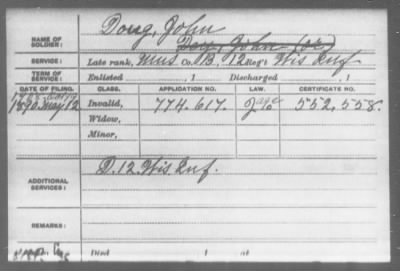 NAME OF SOLDIER: Doug, John
Doy, John (or)
SERVICE: Late rank, Mus Co. B, 12 Reg't Wis Inf.
TERM OF SERVICE: Enlisted , 1 Discharged , 1
DATE OF FILING. CLASS. APPLICATION NO. LAW. CERTIFICATE NO.
1890 May 12 Invalid, 774.617. 552,558.
Widow,
Minor,
ADDITIONAL SERVICES: D. 12. Wis Inf.
REMARKS:
Died , 1 at